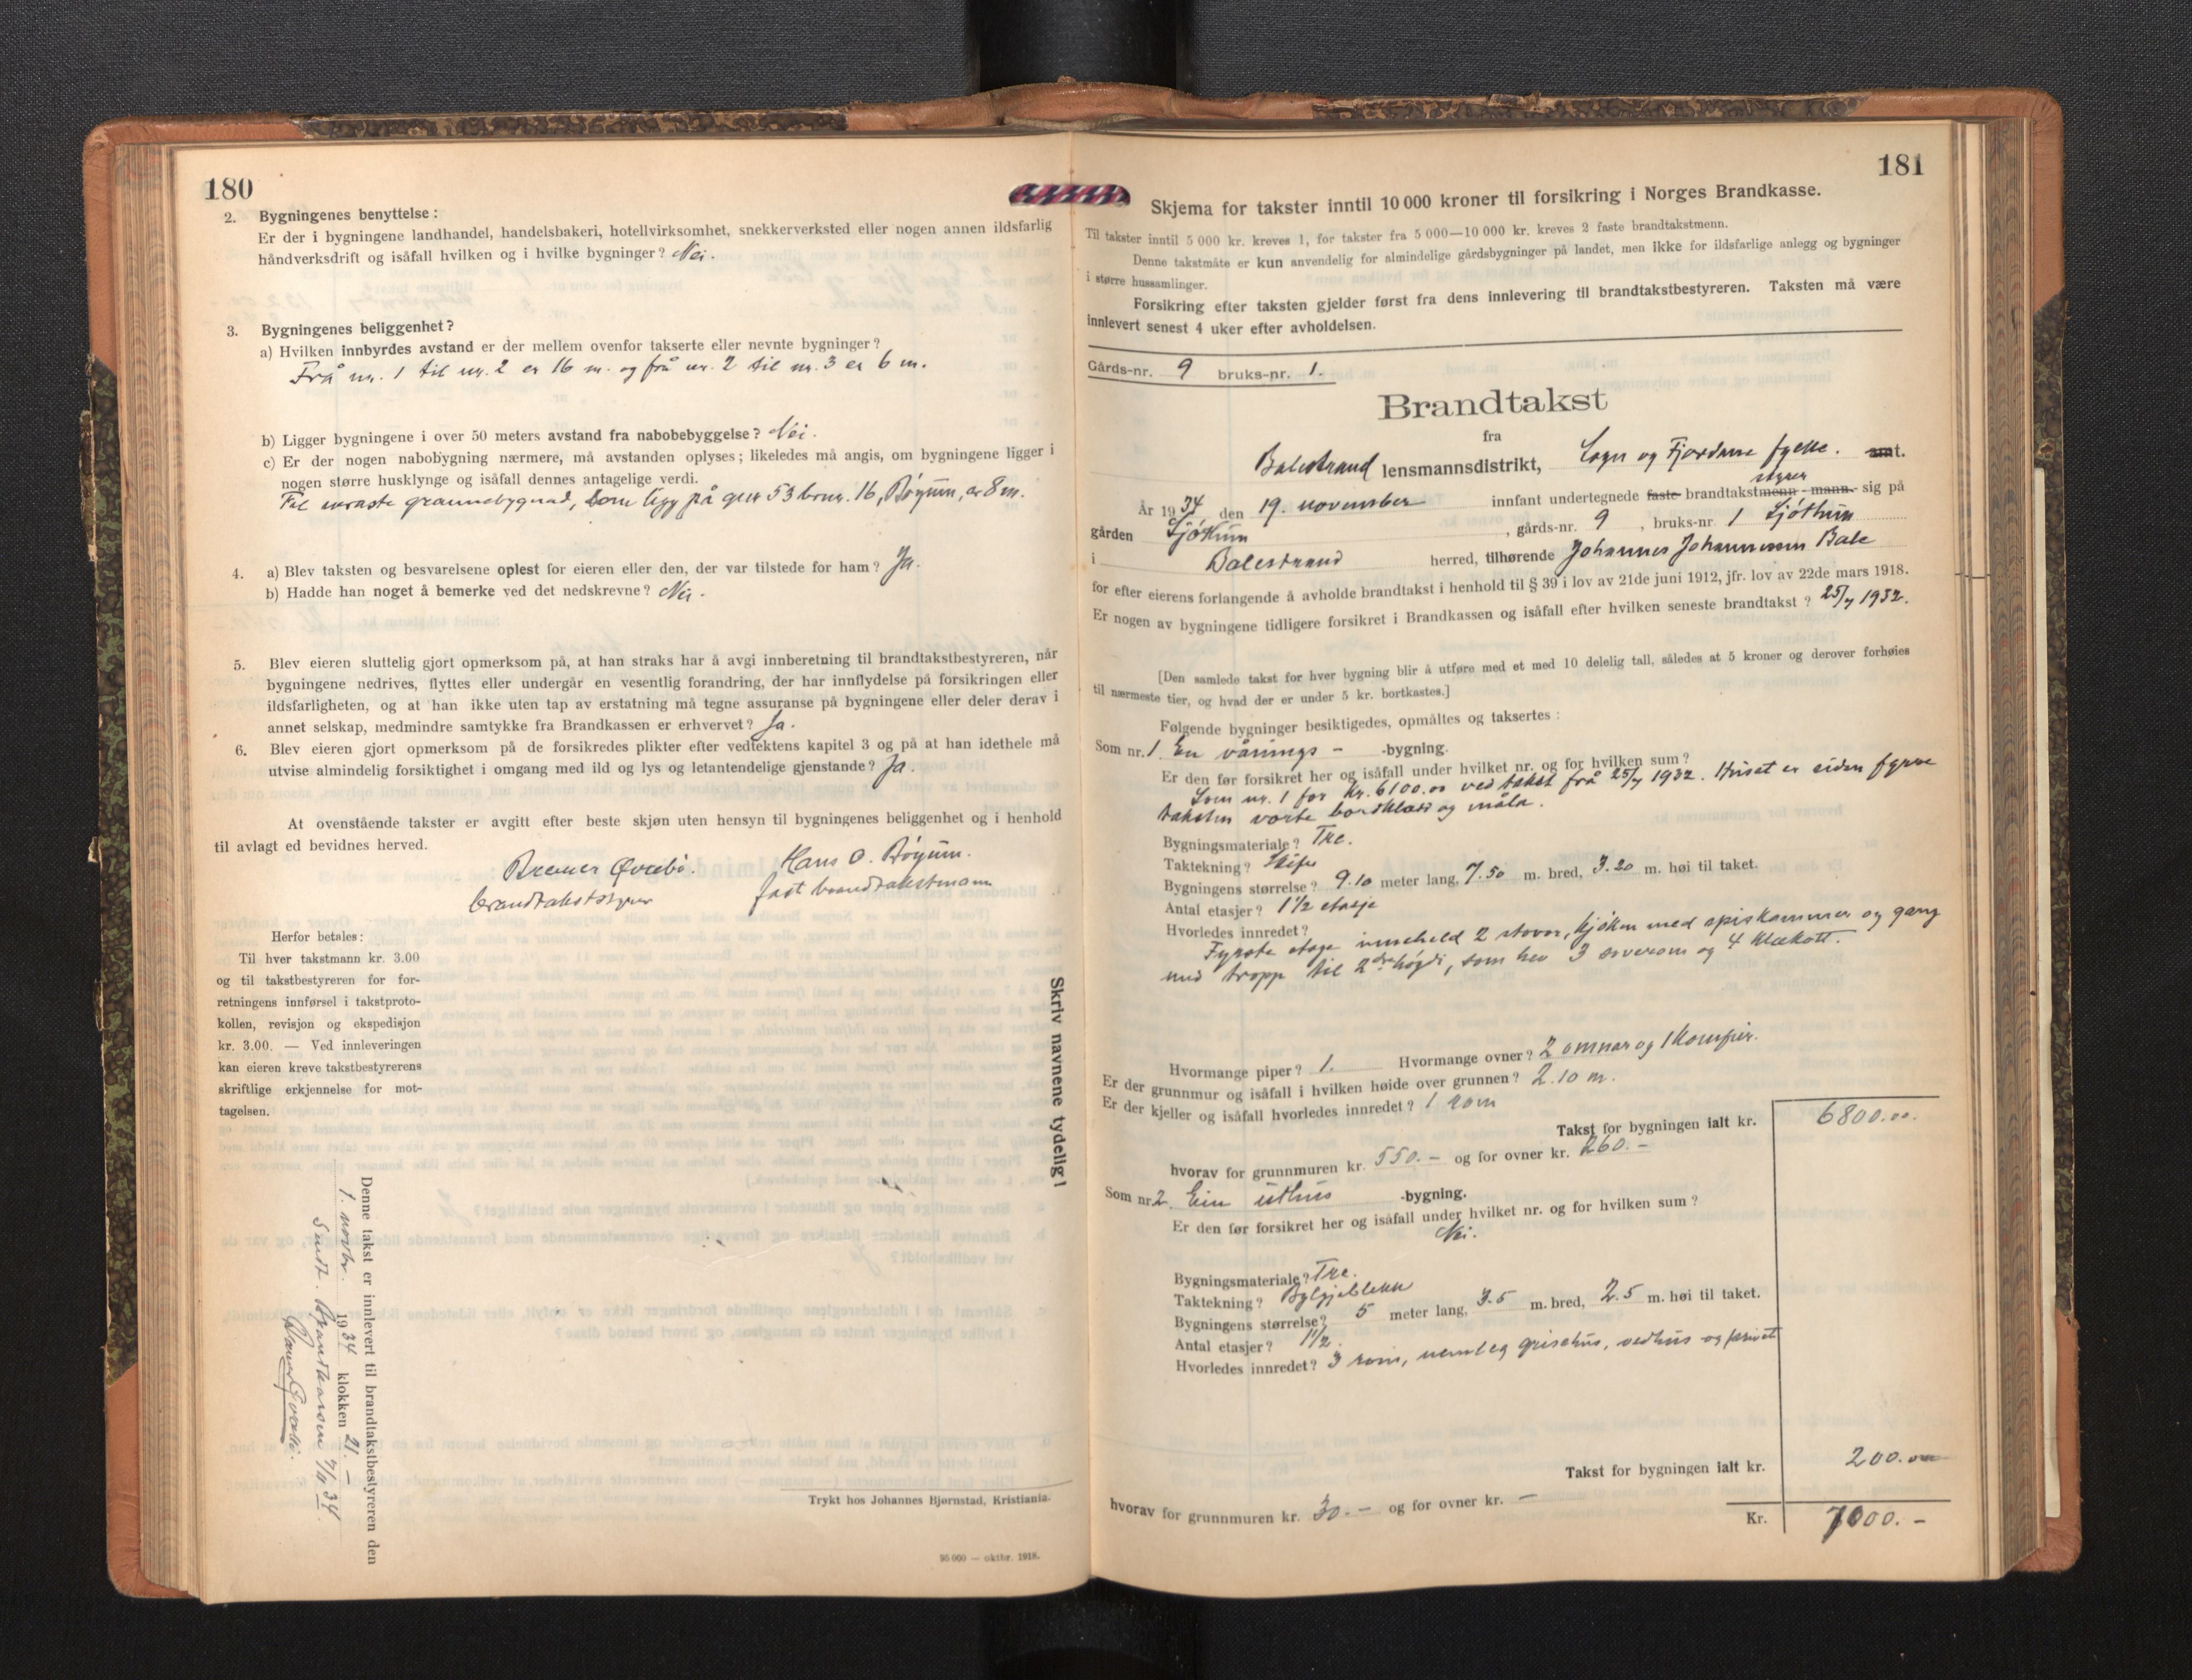 180
2. Bygningenes benyttelse:
Er der i bygningene landhandel, handelsbakeri, hotellvirksomhet, snekkerverksted eller nogen annen ildsfarlig
håndverksdrift og isåfall hvilken og i hvilke bygninger? Nei.
3. Bygningenes beliggenhet?
a) Hvilken innbyrdes avstand er der mellem ovenfor takserte eller nevnte bygninger?
Frå nr. 1 til nr. 2 er 16 m. og frå nr. 2 til nr. 3 er 6 m.
b) Ligger bygningene i over 50 meters avstand fra nabobebyggelse? Nei.
c) Er der nogen nabobygning nærmere, må avstanden oplyses; likeledes må angis, om bygningene ligger i
nogen større husklynge og isåfall dennes antagelige verdi.
Til næraste grannebygnad, som ligg på gnr 53 brnr. 16, Bøyum, er 8 m.
4. a) Blev taksten og besvarelsene oplest for eieren eller den, der var tilstede for ham? Ja.
b) Hadde han noget å bemerke ved det nedskrevne? Nei.
5. Blev eieren sluttelig gjort opmerksom på, at han straks har å avgi innberetning til brandtakstbestyreren, når
bygningene nedrives, flyttes eller undergår en vesentlig forandring, der har innflydelse på forsikringen eller
ildsfarligheten, og at han ikke uten tap av erstatning må tegne assuranse på bygningene eller deler derav i
annet selskap, medmindre samtykke fra Brandkassen er erhvervet? Ja.
6. Blev eieren gjort opmerksom på de forsikredes plikter efter vedtektens kapitel 3 og på at han idethele må
utvise almindelig forsiktighet i omgang med ild og lys og letantendelige gjenstande? Ja.
At ovenstående takster er avgitt efter beste skjøn uten hensyn til bygningenes beliggenhet og i henhold
til avlagt ed bevidnes herved.
Brenner Øvrebø. Hans O. Bøyum.
brandtakststyrer fast brandtakstmann
Herfor betales:
Til hver takstmann kr. 3.00
og til takstbestyreren for for-
retningens innførsel i takstproto-
kollen, revisjon og ekspedisjon
kr. 3.00. — Ved innleveringen
kan eieren kreve takstbestyrerens
skriftlige erkjennelse for mot-
tagelsen.
Skriv navnene tydelig!
Denne takst er innlevert til brandtakstbestyreren den
1. novbr. 1934 klokken 21. –
Sendt Brandkassen 34
Øvrebø.
Trykt hos Johannes Bjørnstad, Kristiania.
95 000 — oktbr. 1918.
181
Skjema for takster inntil 10 000 kroner til forsikring i Norges Brandkasse.
Til takster inntil 5 000 kr. kreves 1, for takster fra 5 000—10 000 kr. kreves 2 faste brandtakstmenn.
Denne takstmåte er kun anvendelig for almindelige gårdsbygninger på landet, men ikke for ildsfarlige anlegg og bygninger
i større hussamlinger.
Forsikring efter taksten gjelder først fra dens innlevering til brandtakstbestyreren. Taksten må være
innlevert senest 4 uker efter avholdelsen.
Gårds-nr. 9 bruks-nr. 1.
Brandtakst
fra
Balestrand lensmannsdistrikt, Sogn og Fjordane fylke. amt.
styrer
År 1934 den 19. november innfant undertegnede faste brandtakstmenn -mann- sig på
gården Sjøtun, gårds-nr. 9, bruks-nr 1 Sjøtun
i Balestrand herred, tilhørende Johannes Johannessen Bale
for efter eierens forlangende å avholde brandtakst i henhold til § 39 i lov av 21de juni 1912, jfr. lov av 22de mars 1918.
Er nogen av bygningene tidligere forsikret i Brandkassen og isåfall efter hvilken seneste brandtakst? 25/7 1932.
[Den samlede takst for hver bygning blir å utføre med et med 10 delelig tall, således at 5 kroner og derover forhøies
til nærmeste tier, og hvad der er under 5 kr. bortkastes.]
Følgende bygninger besiktigedes, opmåltes og taksertes:
Som nr. 1 En vånings- -bygning.
Er den før forsikret her og isåfall under hvilket nr. og for hvilken sum?
Som nr. 1 for Kr. 6100.00 ved takst frå 25/7 1932. Huset er siden fyrre
taksten vorte bordklædt og måla.
Bygningsmateriale? Tre.
Taktekning? Skifer
Bygningens størrelse? 9.10 meter lang, 7.50 m. bred, 3.20 m. høi til taket.
Antal etasjer? 1½ etasje
Hvorledes innredet?
Fyrste etage inneheld 2 stover, kjøken med spiskammer og gang
med tropp til 2dre høgdi, som hev 3 soverom og 4 klækott.
Hvormange piper? 1. Hvormange ovner? 2 omnar og 1 komfyr.
Er der grunnmur og isåfall i hvilken høide over grunnen? 2.10 m.
Er der kjeller og isåfall hvorledes innredet? 1 rom
Takst for bygningen ialt kr. 6800.00.
hvorav for grunnmuren kr. 550.– og for ovner kr. 260.–
Som nr. 2. Ein uthus -bygning.
Er den før forsikret her og isåfall under hvilket nr. og for hvilken sum?
Nei.
Bygningsmateriale? Tre.
Taktekning? Bylgjeblekk
Bygningens størrelse? 5 meter lang, 3.5 m. bred, 2.5 m. høi til taket.
Antal etasjer? 1½.
Hvorledes innredet? 3 rom, nemleg grisehus, vedhus og privet
Takst for bygningen ialt kr. 200.00
hvorav for grunnmuren kr. 30.– og for ovner kr. –
Kr. 7000.–